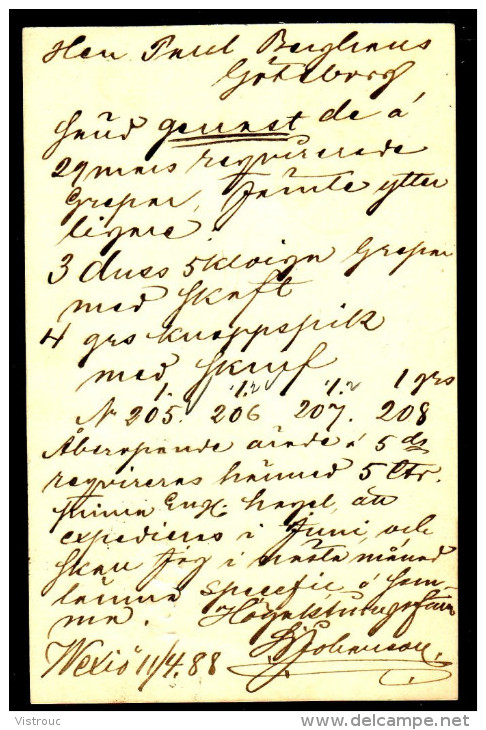 Herr Paul Berghaus
Göteborg
Sänd genast de á
29 mars reqvirerade
Grepar, jämte ytter
ligare.
3 duss 5 kloiga Grepar
med skaft
4 grs knappspik
med skruf
1. 1/2 1/2 1 grs
N 205. 206 207. 208
Åberopande ärade á 5 ds
reqvireras härmed 5 Ctr.
prima Eng. hagel, att
expedieras i Juni, och
skall jag i nästa månad
lämna specefic á sam-
ma. Högaktningsfullt
Johansson
Wexiö 11/4.88
Vistrouc
www.delcampe.net